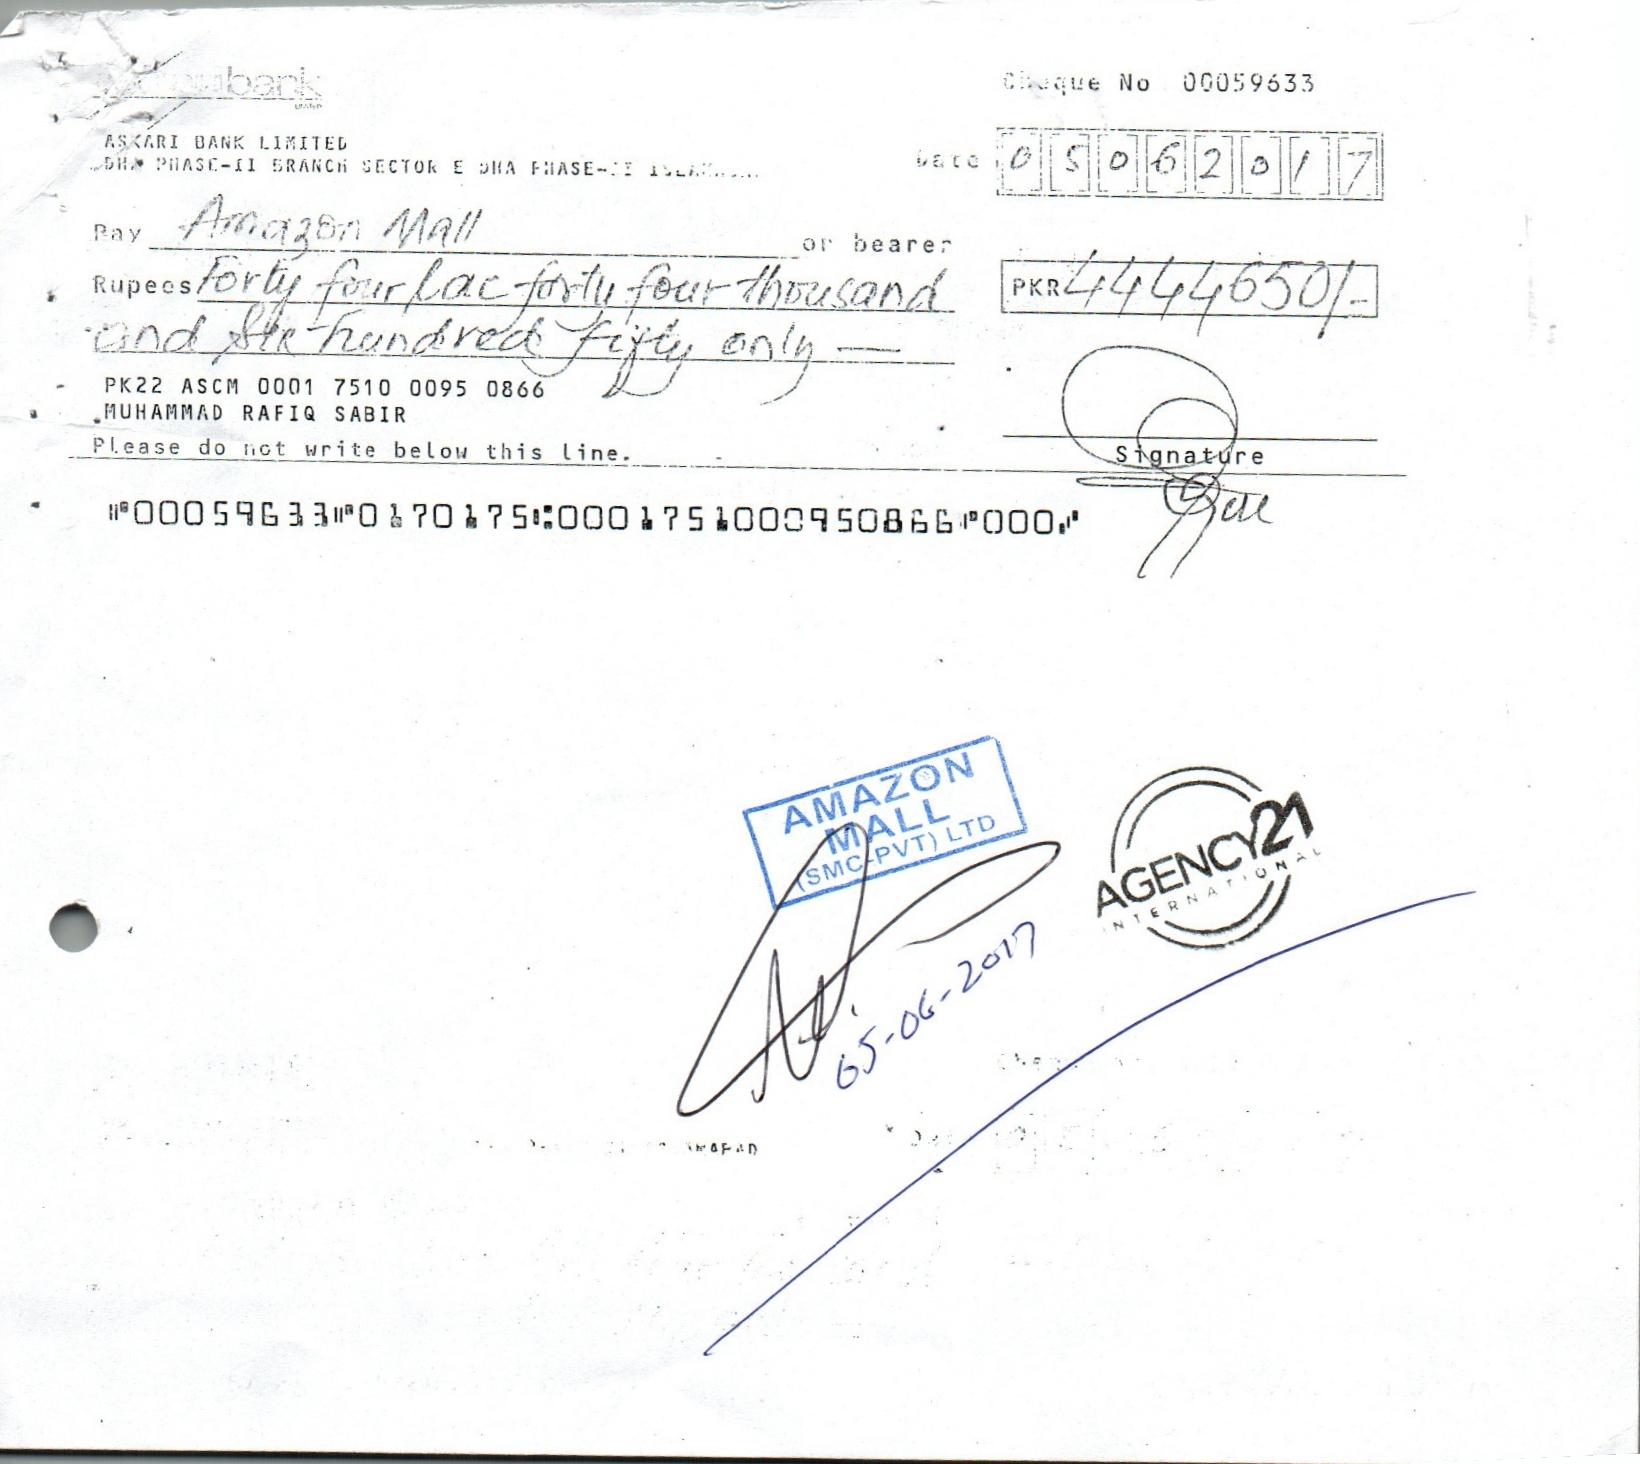 bank
Cheque No 00059633
ASKARI BANK LIMITED
DHA PHASE-II BRANCH SECTOR E DHA PHASE-II
Date 05062017
Pay Amazon Mall or bearer
Rupees Forty four lac forty four thousand
PKR 4444650/-
and Six hundred fifty only —
PK22 ASCM 0001 7510 0095 0866
MUHAMMAD RAFIQ SABIR
Signature
Please do not write below this line.
⑈00059633⑈0170175⑆0001751000950866⑈000⑈
AMAZON
MALL
(SMC-PVT) LTD
AGENCY21
INTERNATIONAL
05-06-2017